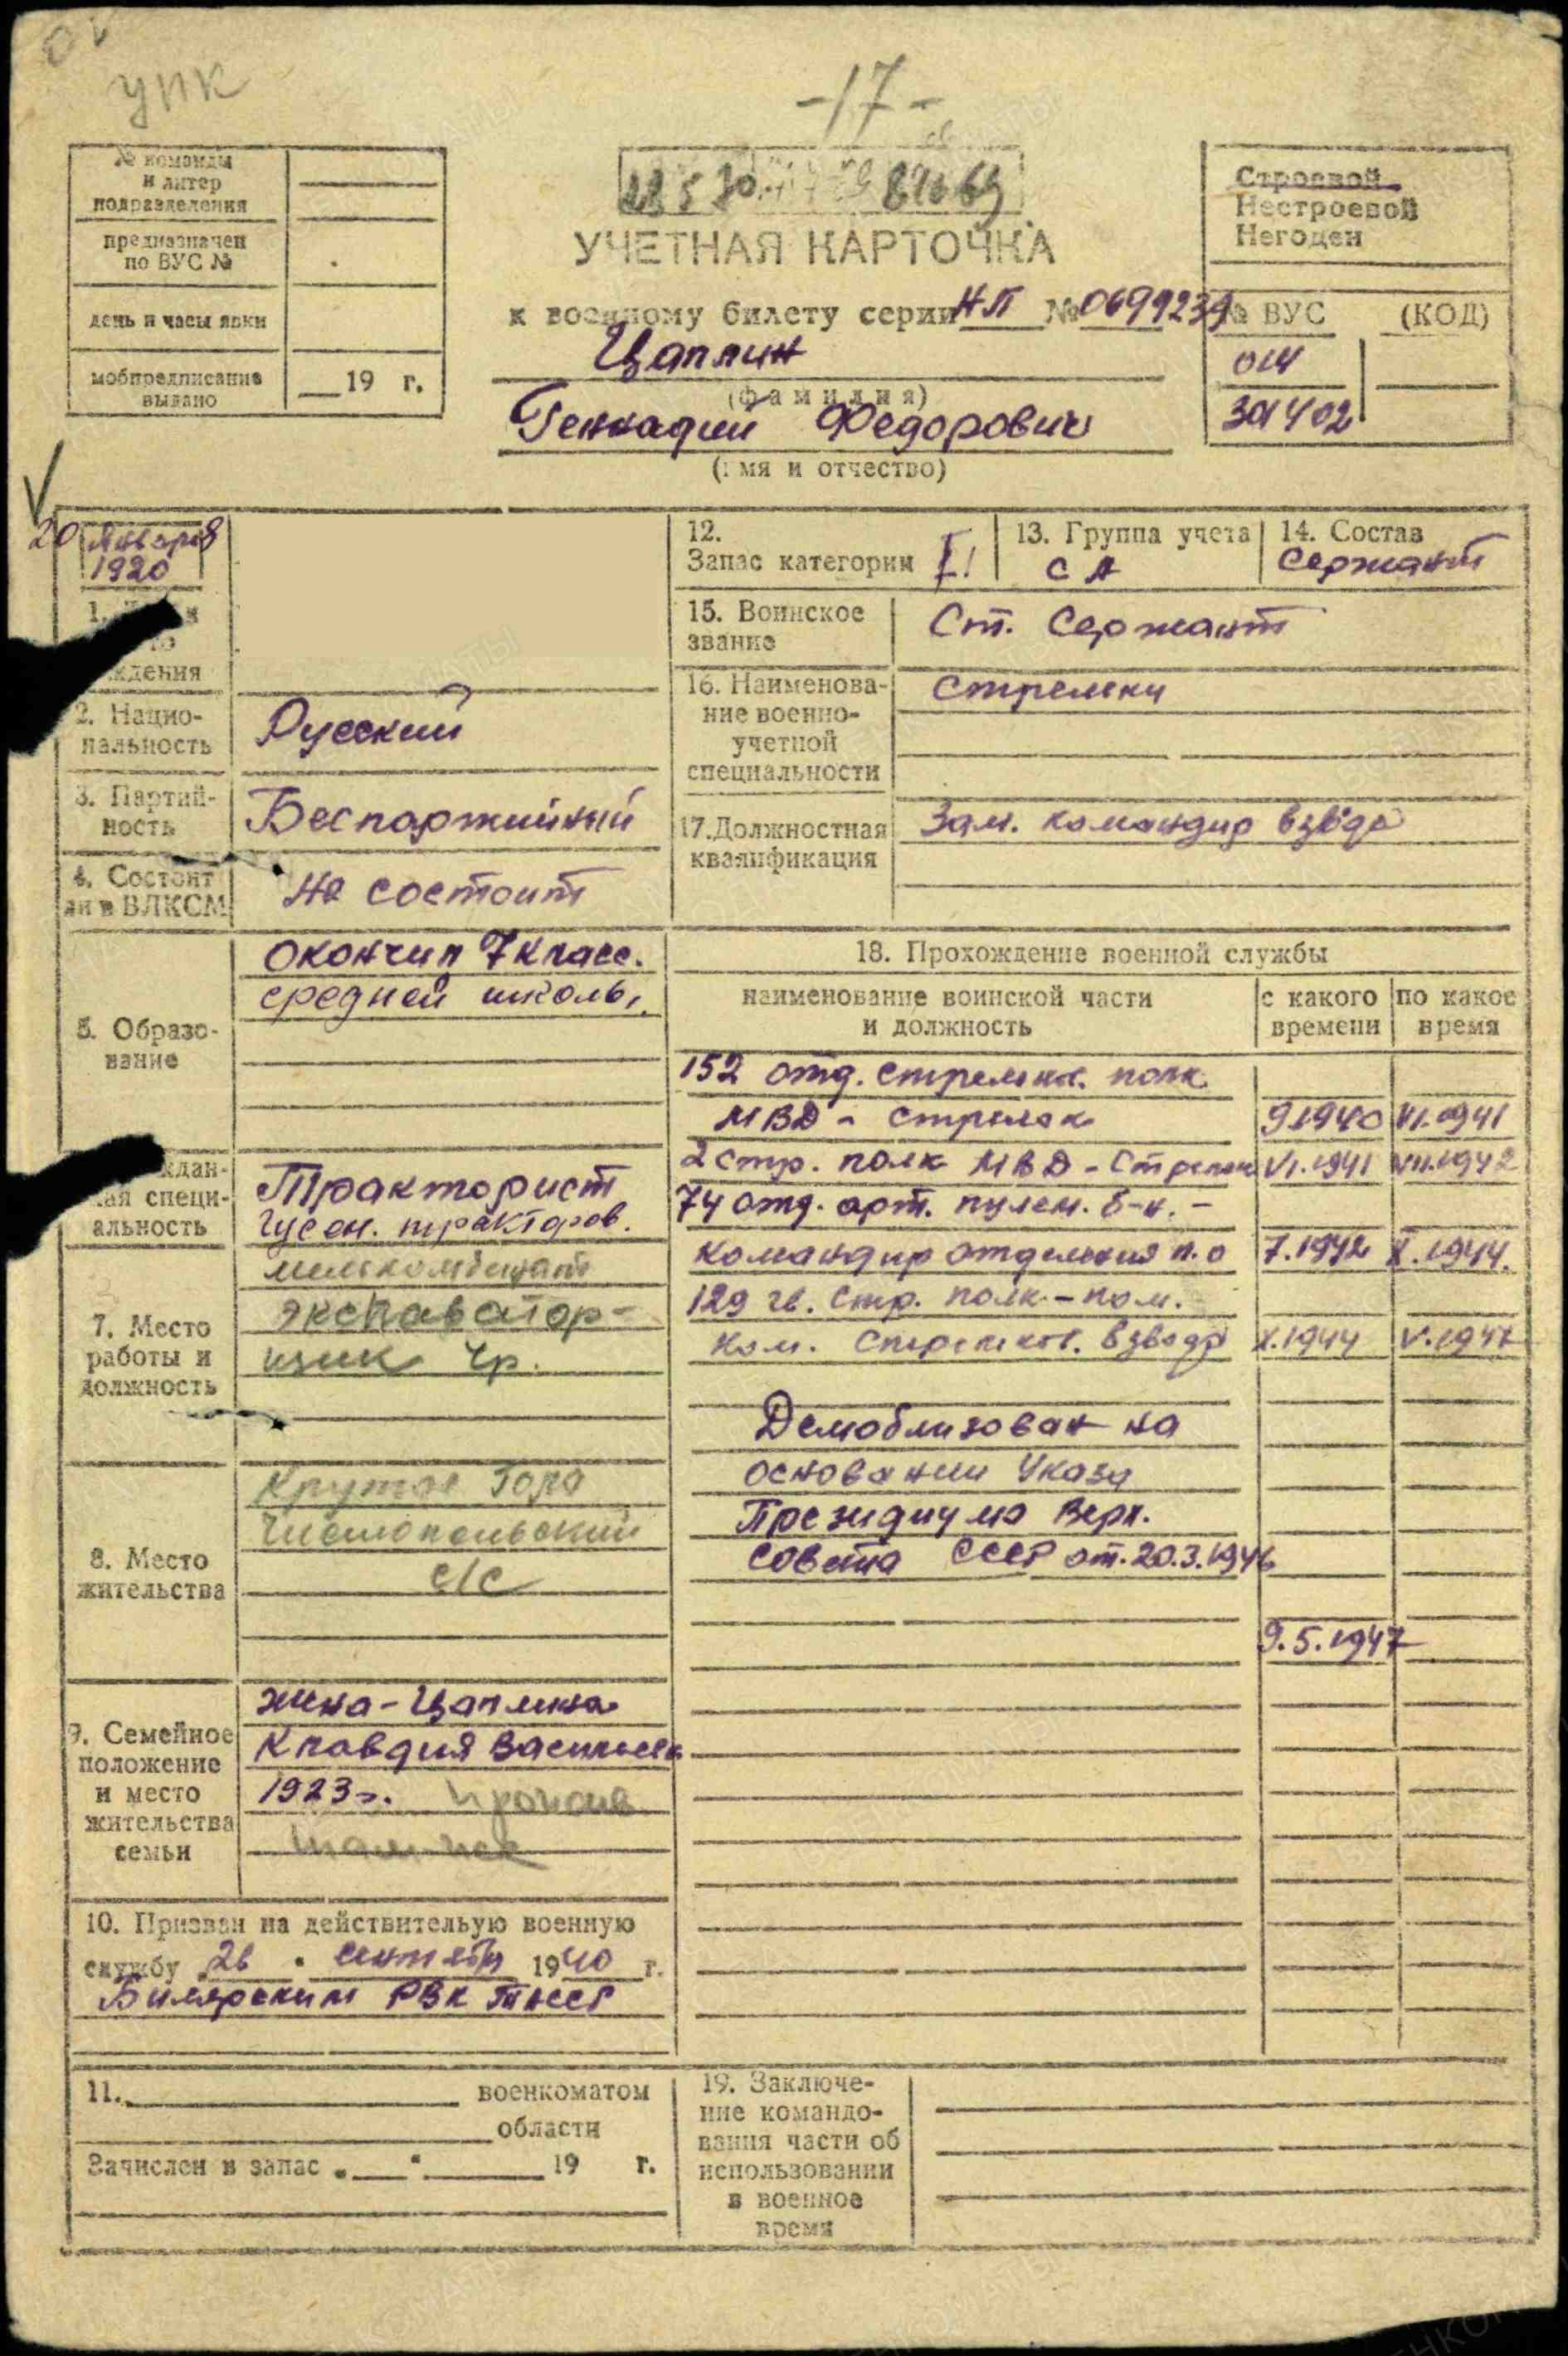 упк
-17-
№ команды
и литер
подразделения
предназначен
по ВУС №
день и часы явки
мобпредписание
выдано
19 г.
УЧЕТНАЯ КАРТОЧКА
к военному билету серии НП № 0699239
Цаплин
(фамилия)
Геннадий Федорович
(имя и отчество)
Строевой
Нестроевой
Негоден
№ ВУС (КОД)
014
301402
20 Января
1920
ждения
2. Нацио-
нальность
Русский
3. Партий-
ность
Беспартийный
4. Состоит
ли в ВЛКСМ
не состоит
5. Образо-
вание
окончил 7 класс.
средней школы.
ждан-
кая специ-
альность
Тракторист
гусен. тракторов.
7. Место
работы и
должность
экскаватор-
щик
8. Место
жительства
Крутая Гора
Чистопольский
с/с
9. Семейное
положение
и место
жительства
семьи
жена - Цаплина
Клавдия
1923 г.
10. Призван на действительую военную
службу 26 сентября 1940 г.
Билярским РВК ТАССР
11. военкоматом
области
Зачислен в запас 19 г.
12.
Запас категории I
13. Группа учета
СА
14. Состав
Сержант
15. Воинское
звание
Ст. Сержант
16. Наименова-
ние военно-
учетной
специальности
Стрелки
17. Должностная
квалификация
Зам. командир взвода
18. Прохождение военной службы
наименование воинской части
и должность
с какого
времени
по какое
время
152 отд. стрелк. полк
МВД - стрелок 9.1940 VI.1941
2 стр. полк МВД - Стрелок VI.1941 VII.1942
74 отд. арт. пулем. б-н. -
командир отделения п.о 7.1942 X.1944.
129 гв. стр. полк - пом.
ком. стрелков. взвода X.1944 V.1947
Демоблизован на
основании Указа
Президиума Верх.
Совета СССР от. 20.3.1946
9.5.1947
19. Заключе-
ние командо-
вания части об
использовании
в военное
время